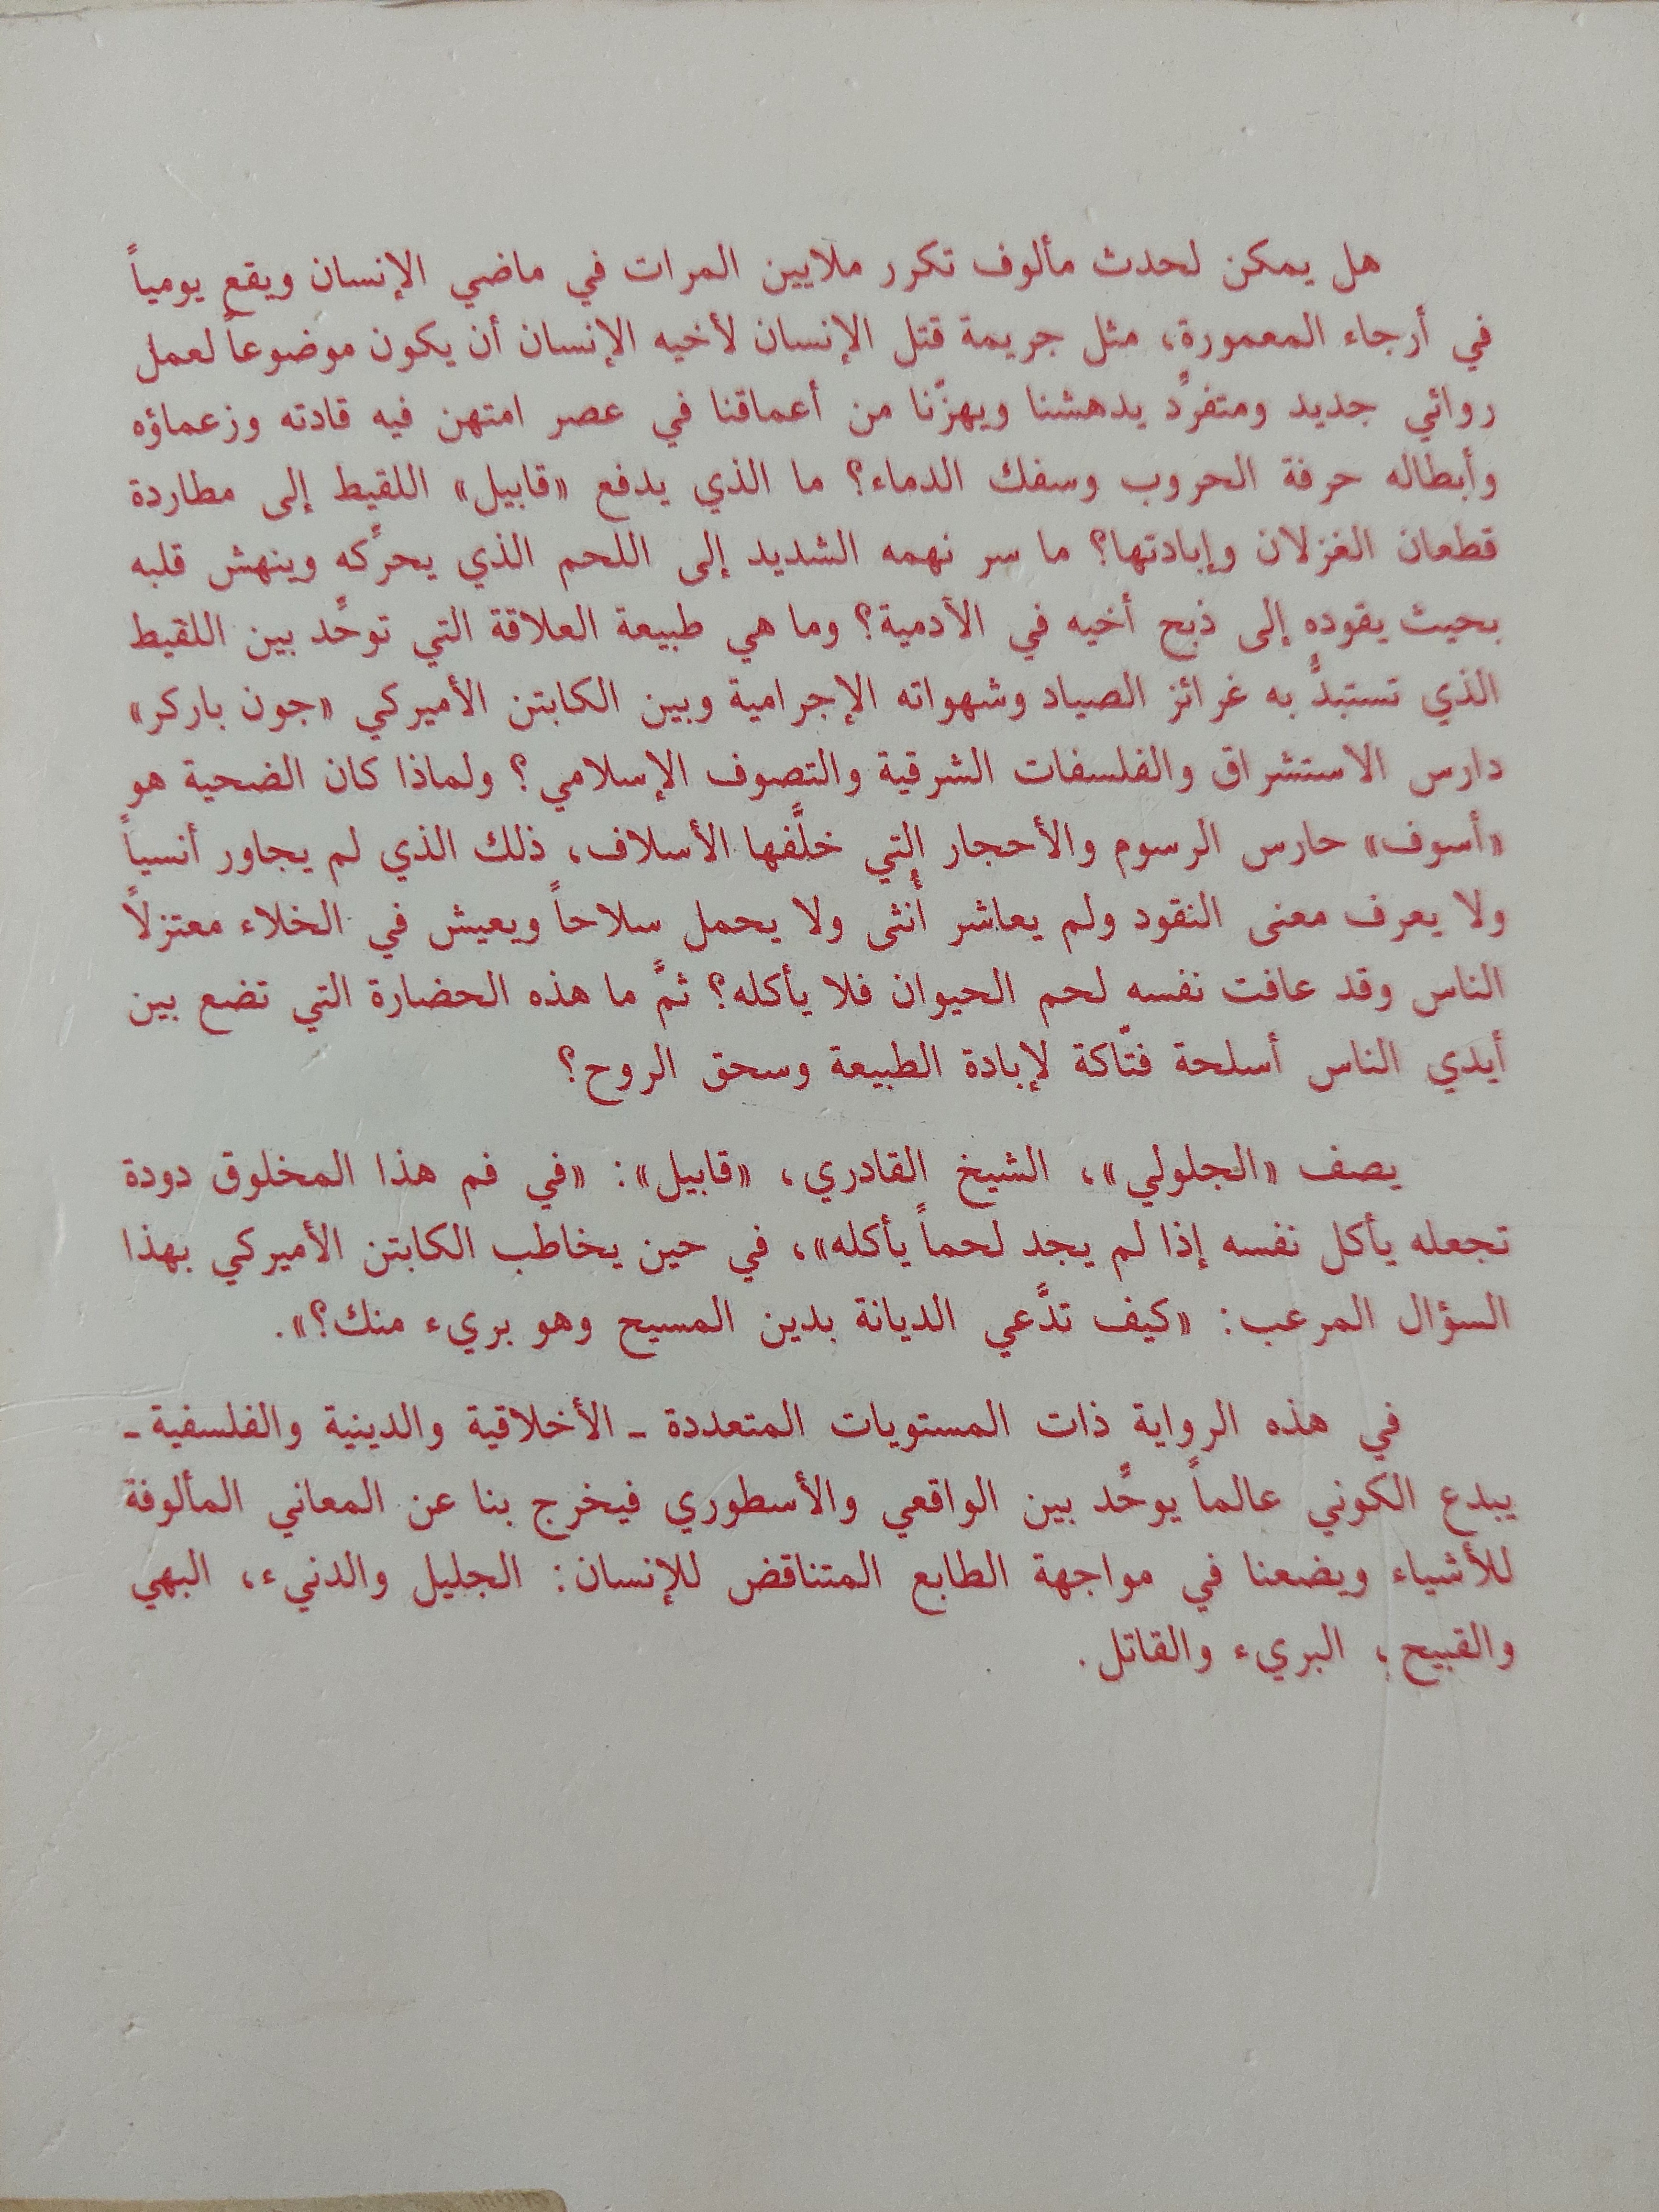 هل يمكن لحدث مألوف تكرر ملايين المرات في ماضي الإنسان ويقع يومياً
في أرجاء المعمورة، مثل جريمة قتل الإنسان لأخيه الإنسان أن يكون موضوعاً لعمل
روائي جديد ومتفرِّد يدهشنا ويهزّنا من أعماقنا في عصر امتهن فيه قادته وزعماؤه
وأبطاله حرفة الحروب وسفك الدماء؟ ما الذي يدفع «قابيل» اللقيط إلى مطاردة
قطعان الغزلان وإبادتها؟ ما سر نهمه الشديد إلى اللحم الذي يحرِّكه وينهش قلبه
بحيث يقوده إلى ذبح أخيه في الآدمية؟ وما هي طبيعة العلاقة التي توحِّد بين اللقيط
الذي تستبدُّ به غرائز الصياد وشهواته الإجرامية وبين الكابتن الأميركي «جون باركر»
دارس الاستشراق والفلسفات الشرقية والتصوف الإسلامي؟ ولماذا كان الضحية هو
«أسوف» حارس الرسوم والأحجار التي خلَّفها الأسلاف، ذلك الذي لم يجاور أنسياً
ولا يعرف معنى النقود ولم يعاشر أنثى ولا يحمل سلاحاً ويعيش في الخلاء معتزلاً
الناس وقد عافت نفسه لحم الحيوان فلا يأكله؟ ثمَّ ما هذه الحضارة التي تضع بين
أيدي الناس أسلحة فتّاكة لإبادة الطبيعة وسحق الروح؟
يصف «الجلولي»، الشيخ القادري، «قابيل»: «في فم هذا المخلوق دودة
تجعله يأكل نفسه إذا لم يجد لحماً يأكله»، في حين يخاطب الكابتن الأميركي بهذا
السؤال المرعب: «كيف تدَّعي الديانة بدين المسيح وهو بريء منك؟».
في هذه الرواية ذات المستويات المتعددة ـ الأخلاقية والدينية والفلسفية ـ
يبدع الكوني عالماً يوحِّد بين الواقعي والأسطوري فيخرج بنا عن المعاني المألوفة
للأشياء ويضعنا في مواجهة الطابع المتناقض للإنسان: الجليل والدنيء، البهي
والقبيح، البريء والقاتل.